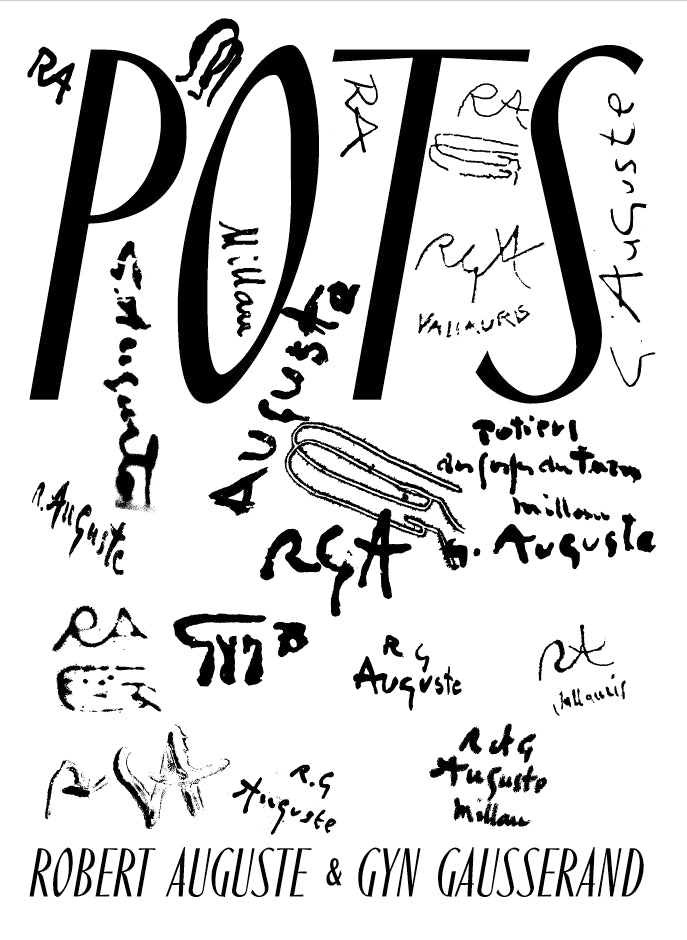 RA
POTS
RA
RA
G. Auguste
Millau
RGA
VALLAURIS
G. Auguste
Auguste
Potiers
Millau
R. Auguste
RGA
G. Auguste
RA
Gyn
R G
Auguste
RA
Vallauris
RA
R.G
Auguste
R et G
Auguste
Millau
ROBERT AUGUSTE & GYN GAUSSERAND